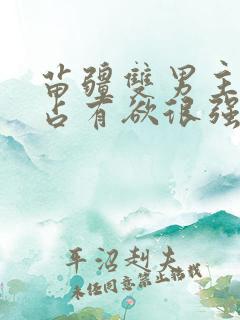 苗疆雙男主
占有欲很强
平沼赳夫
未经同意禁止转载